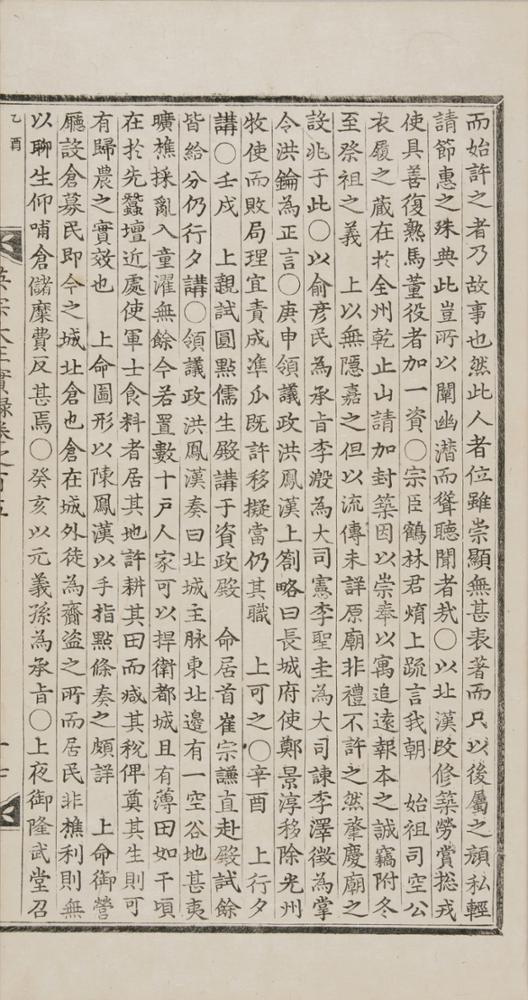 而始許之者乃故事也然此人者位雖崇顯無甚表著而只以後屬之顔私輕
請節惠之殊典此豈所以闡幽潛而聳聽聞者㢤○以北漢改修築勞賞摠戎
使具善復熟馬董役者加一資○宗臣鶴林君焴上䟽言我朝 始祖司空公
衣履之藏在於全州乾止山請加封築因以崇奉以寓追遠報本之誠竊附冬
至祭祖之義 上以無隱嘉之但以流傳未詳原廟非禮不許之然肇慶廟之
設兆于此○以俞彦民為承旨李溵為大司憲李聖圭為大司諫李澤徵為掌
令洪鑰為正言○庚申領議政洪鳳漢上劄略曰長城府使鄭景淳移除光州
牧使而敗局理宜責成準瓜既許移擬當仍其職 上可之○辛酉 上行夕
講○壬戌 上親試圓點儒生殿講于資政殿 命居首崔宗謙直赴殿試餘
皆給分仍行夕講○領議政洪鳳漢奏曰北城主脉東北邊有一空谷地甚夷
曠樵採亂入童濯無餘今若置數十戶人家可以捍衛都城且有薄田如干頃
在於先蠶壇近處使軍士食料者居其地許耕其田而减其稅俾奠其生則可
有歸農之實效也 上命圖形以陳鳳漢以手指點條奏之頗詳 上命御營
廳設倉募民即今之城北倉也倉在城外徒為齎盜之所而居民非樵利則無
以聊生仰哺倉儲糜費反甚焉○癸亥以元義孫為承旨○上夜御隆武堂召
乙酉
英宗大王實錄卷之百五